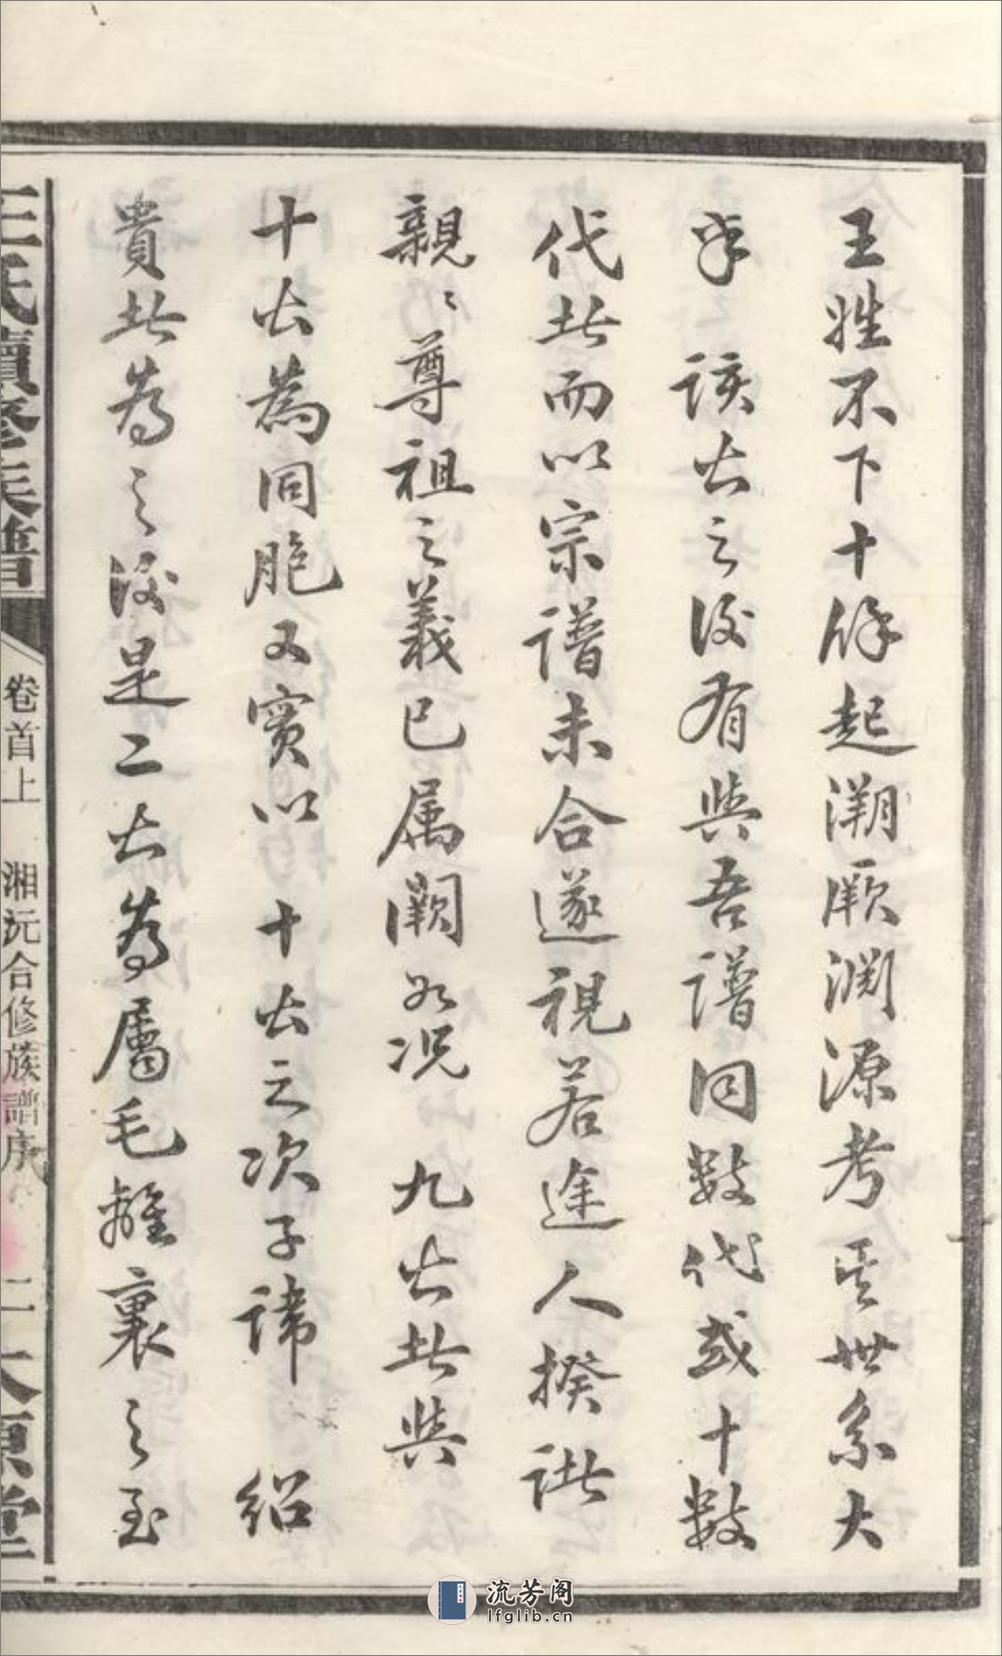 王姓不下十餘起溯厥淵源考其世系大
半 該公之後有與吾譜同數代或十數
代者而以宗譜未合遂視若途人揆諸
親〻尊祖之義已属闕如况 九公者與
十公為同胞又實以 十公之次子諱 紹
貴者為之後是二公為屬毛離裏之至
王氏續修族譜 卷首上 湘沅合修族譜序 二 太原堂
流芳阁
lfglib.cn